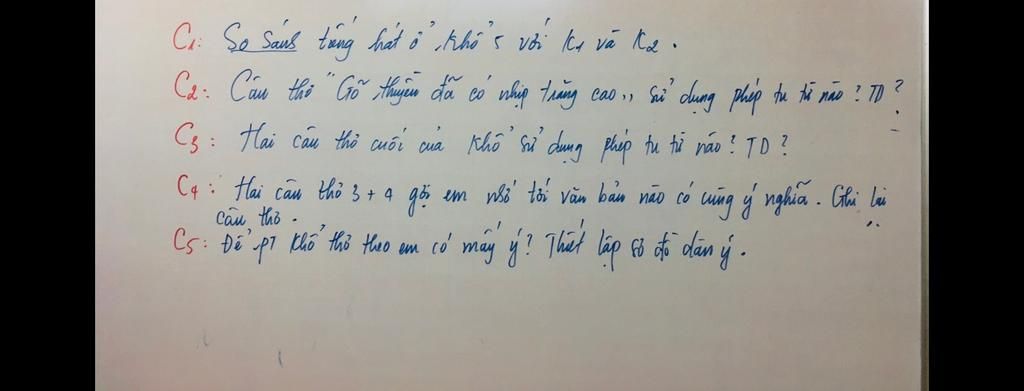 C1: So sánh tiếng hát ở khổ 5 với K1 và K2.
C2: Câu thơ "Gõ thuyền đã có nhịp trăng cao,, sử dụng phép tu từ nào? TD?
C3: Hai câu thơ cuối của khổ sử dụng phép tu từ nào? TD?
C4: Hai câu thơ 3 + 4 gợi em nhớ tới văn bản nào có cùng ý nghĩa. Ghi lại
câu thơ.
C5: Để PT khổ thơ theo em có mấy ý? Thiết lập sơ đồ dàn ý.